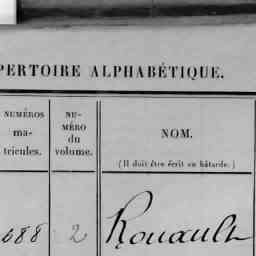 PERTOIRE ALPHABÉTIQUE.
NUMÉROS
ma-
tricules.
NU-
MÉRO
du
volume.
NOM.
(Il doit être écrit en bâtarde.)
688 2 Rouault